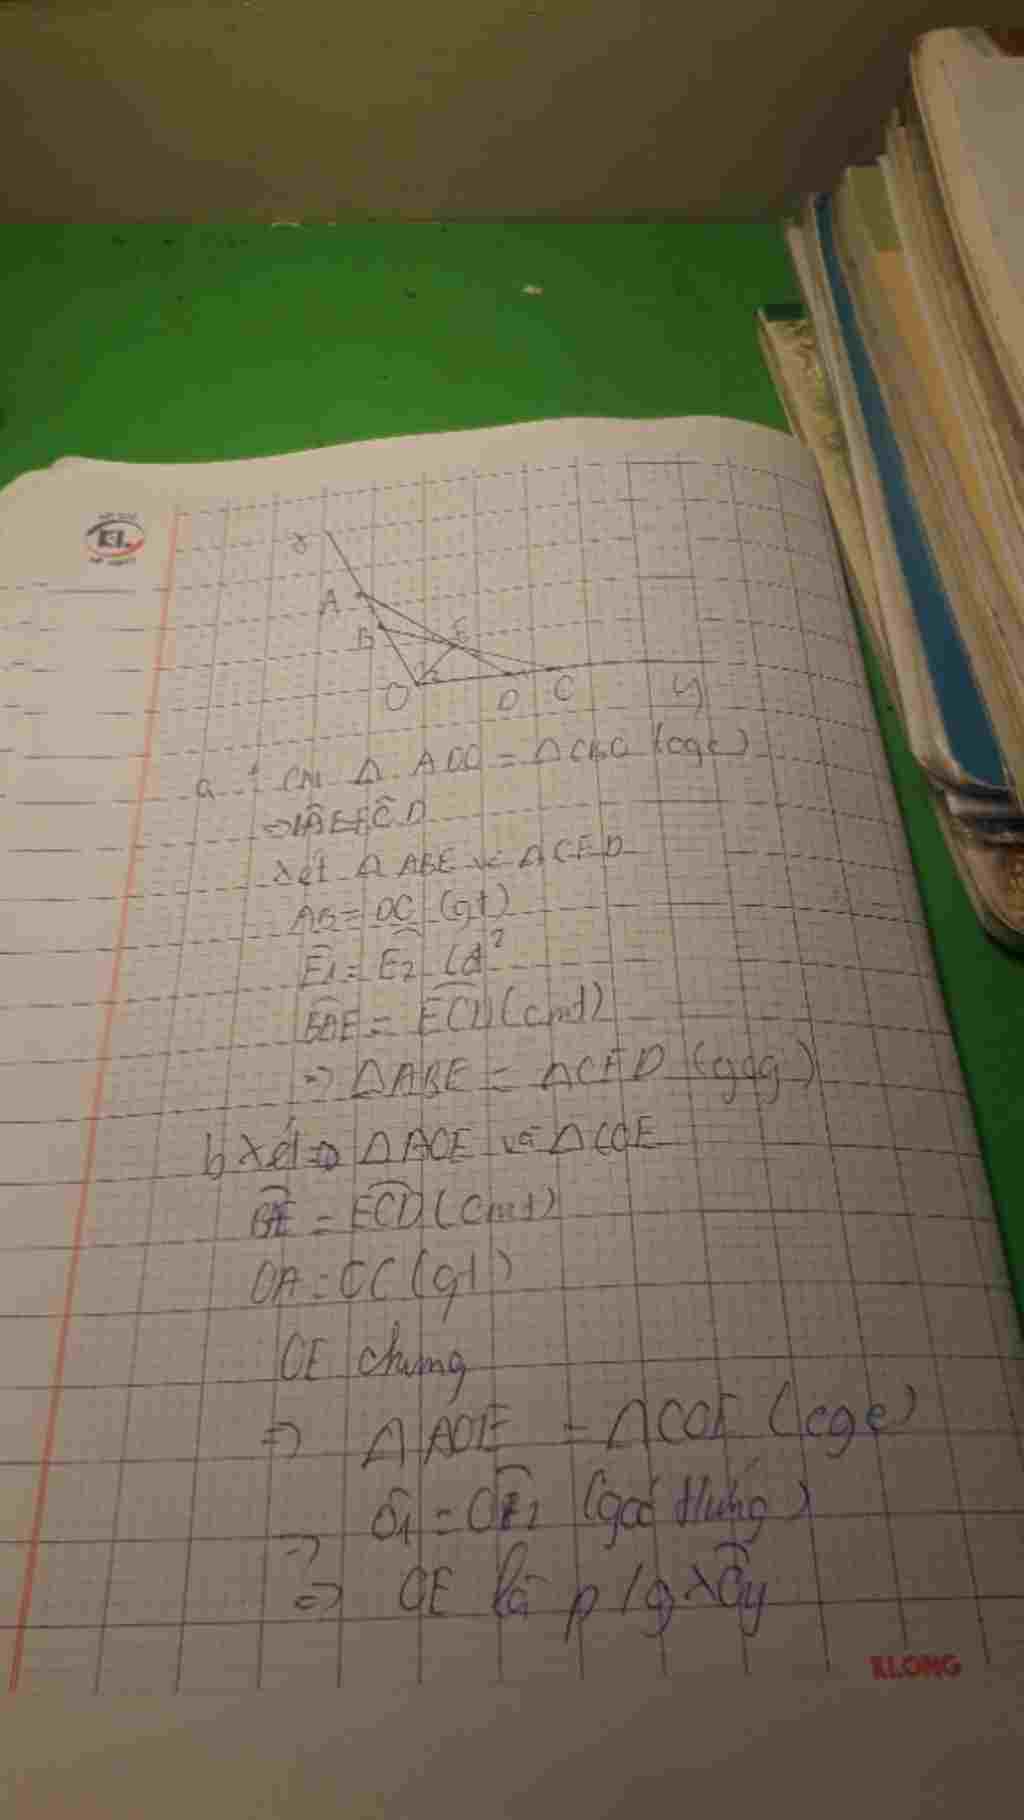 KL
x
A
B
E
O
D
C
y
a
CM Δ ADO = ΔCBO (cgc)
xét Δ ABE và ΔCED
AB = DC (gt)
Ê1 = Ê2 (đ²
BAE = ECD (cmt)
=> ΔABE = ΔCED (gcg)
b xét ΔAOE và ΔCOE
= ECD (cmt)
OA = OC (gt)
OE chung
=> ΔAOE = ΔCOE (cgc)
=> Ô1 = (góc tương ứng)
=> OE là p/g xÔy
KLONG